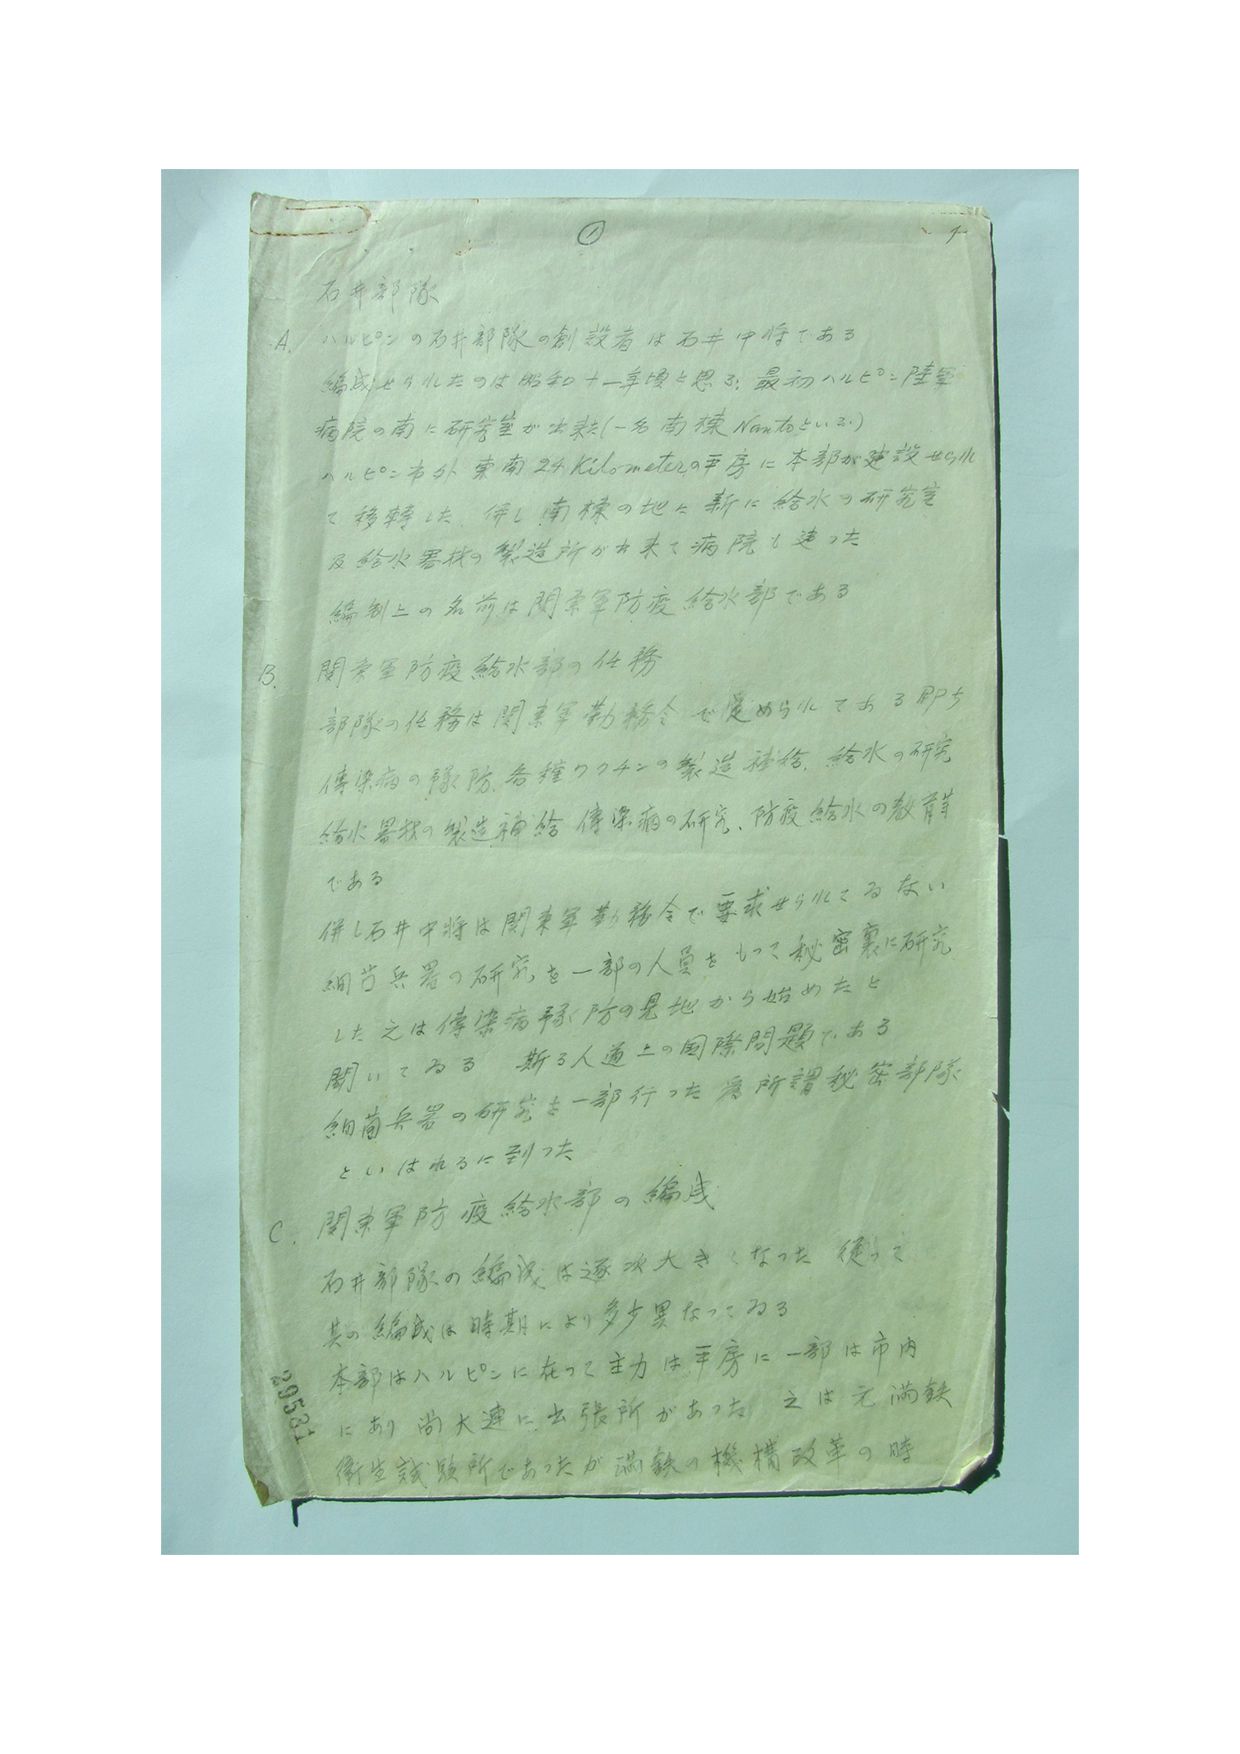 ①
1
石井部隊
A. ハルピンの石井部隊の創設者は石井中将である
編成せられたのは昭和十一年頃と思る、最初ハルピン陸軍
病院の南に研究室が出来た(一名南棟Nantoといふ)
ハルピン市外東南24Kilometerの平房に本部が建設せられ
て移轉した 併し南棟の地に新に給水の研究室
及給水器材の製造所が出来て病院も建った
編制上の名前は関東軍防疫給水部である
B. 関東軍防疫給水部の任務
部隊の任務は関東軍勤務令で定められてある即ち
傳染病の豫防、各種ワクチンの製造補給、給水の研究
給水器材の製造補給 傳染病の研究、防疫給水の教育等
である
併し石井中将は関東軍勤務令で要求せられてゐない
細菌兵器の研究を一部の人員をもって秘密裏に研究
した 之は傳染病豫防の見地から始めたと
聞いてゐる 斯る人道上の国際問題である
細菌兵器の研究を一部行った為所謂秘密部隊
といはれるに到った
C. 関東軍防疫給水部の編成
石井部隊の編成は逐次大きくなった 従って
其の編成は時期により多少異なってゐる
本部はハルピンに在って主力は平房に一部は市内
にあり尚大連に出張所があった 之は元満鉄
衛生試験所であったが満鉄の機構改革の時
29531